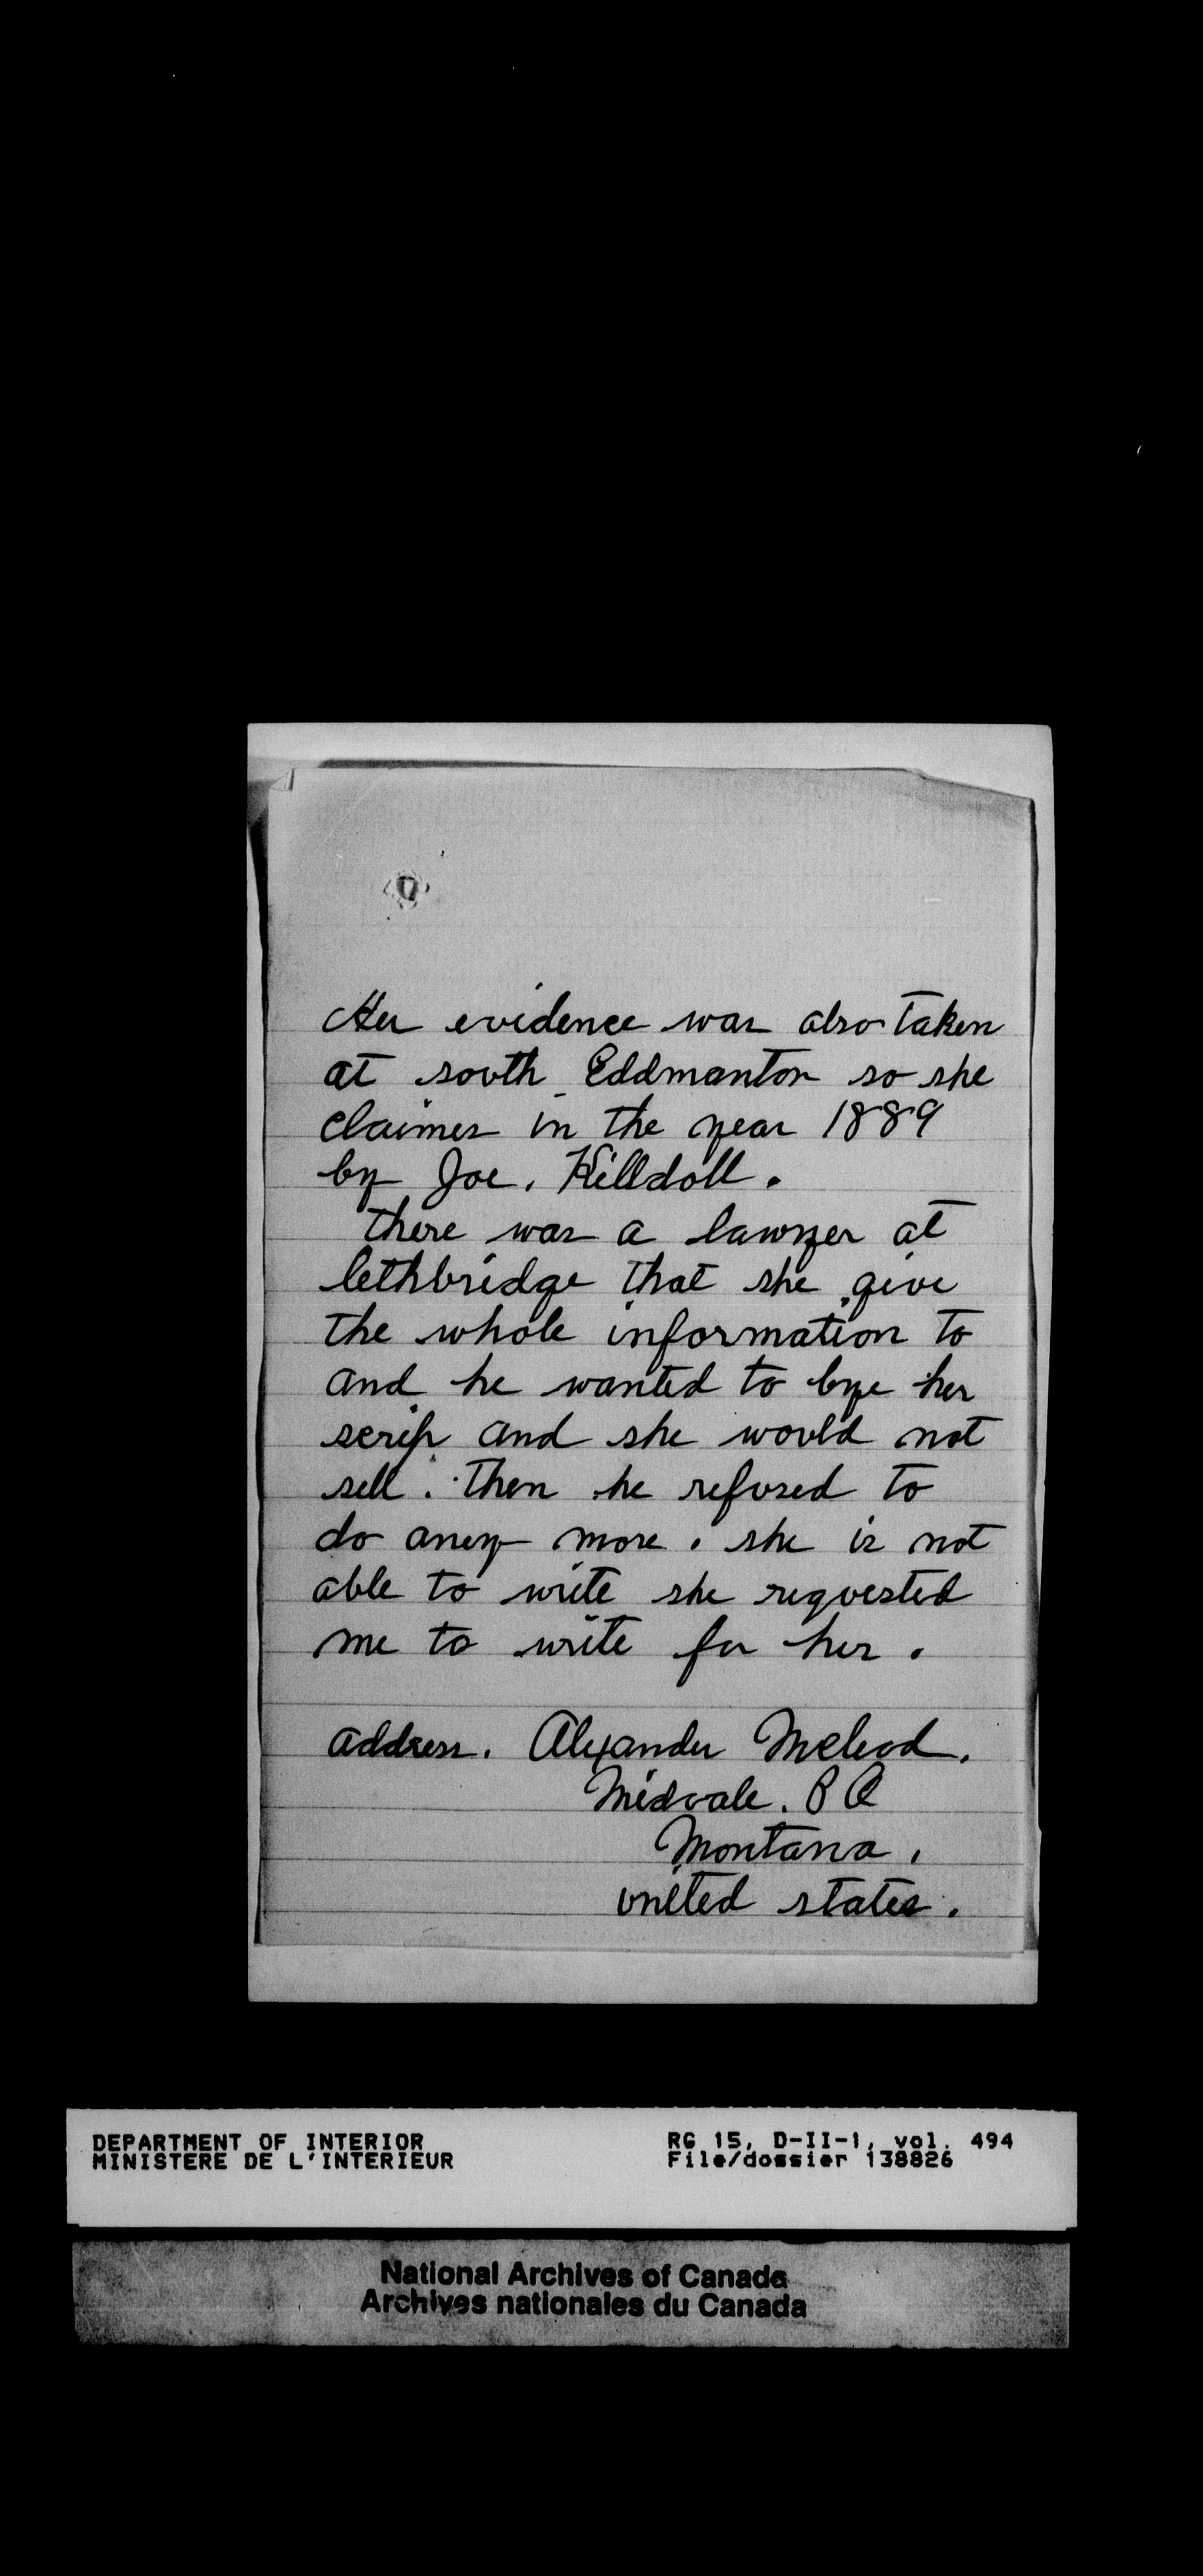 Her evidence was also taken
at south Eddmanton so she
claimes in the year 1889
by Joe. Killdoll.
there was a lawyer at
lethbridge that she give
the whole information to
and he wanted to bye her
scrip and she would not
sell. then he refused to
do aney more. she is not
able to write she requested
me to write for her.
address. Alexander Mcleod.
Midvale. P O
Montana.
united states.
DEPARTMENT OF INTERIOR
MINISTERE DE L'INTERIEUR
RG 15, D-II-1, vol. 494
File/dossier 138826
National Archives of Canada
Archives nationales du Canada